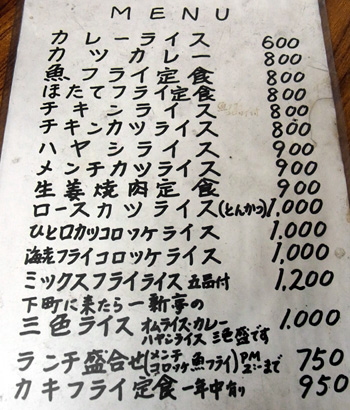 MENU
カレーライス 600
カツカレー 800
魚フライ定食 800
ほたてフライ定食 800
チキンライス 800
チキンカツライス 800
ハヤシライス 900
メンチカツライス 900
生姜焼肉定食 900
ロースカツライス(とんかつ) 1,000
ひと口カツコロッケライス 1,000
海老フライコロッケライス 1,000
ミックスフライライス 五品付 1,200
下町に来たら一新亭の
三色ライス オムライス・カレー 1,000
ハヤシライス 三色盛です
ランチ盛合せ(メンチ PM 750
コロッケ魚フライ) まで
カキフライ定食 一年中有り 950